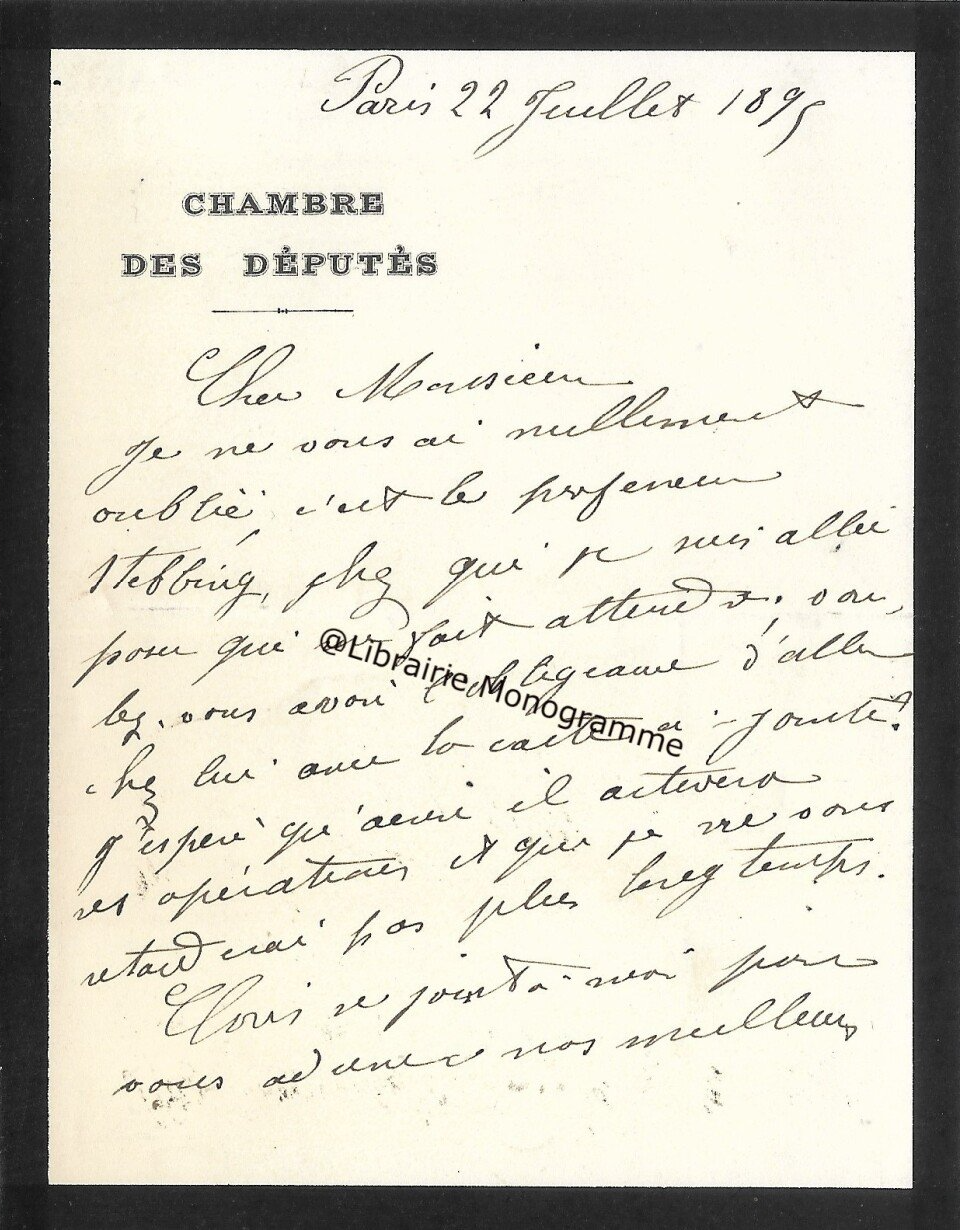 Paris 22 Juillet 1895
CHAMBRE
DES DÉPUTÉS
Cher Monsieur
Je ne vous ai nullement
oublié, c'est le professeur
Stebbing, chez qui je suis allée
poser qui fait attendre. vou-
lez-vous avoir l'obligeance d'aller
chez lui avec la carte ci-jointe?
J'espère qu'ainsi il activera
ses opérations et que je ne vous
retarderai pas plus longtemps.
Clovis se joint à moi pour
vous adresser nos meilleurs
@Librairie Monogramme